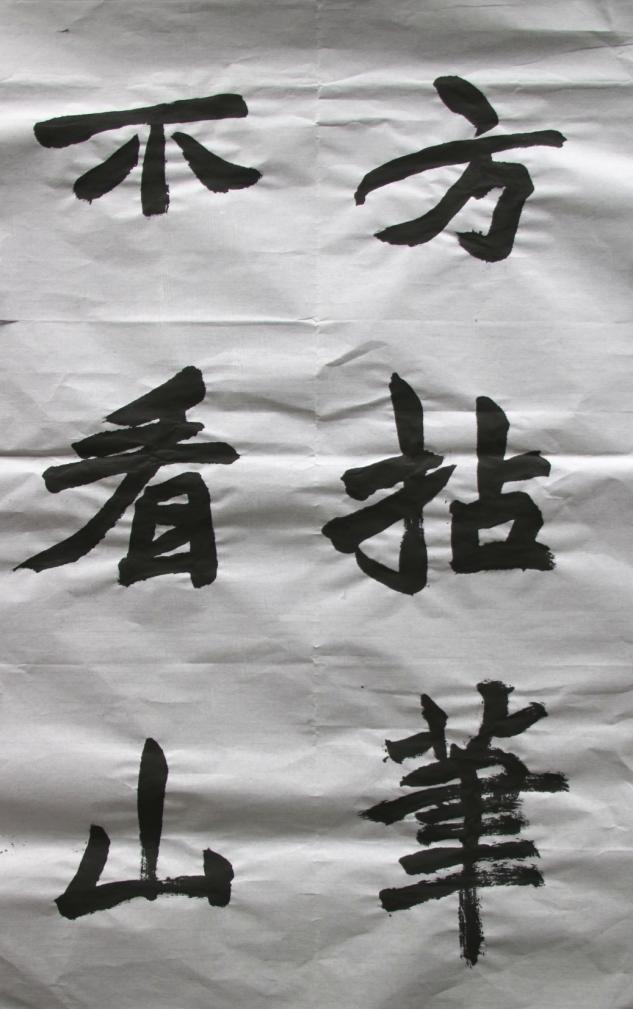 方拈筆
不看山